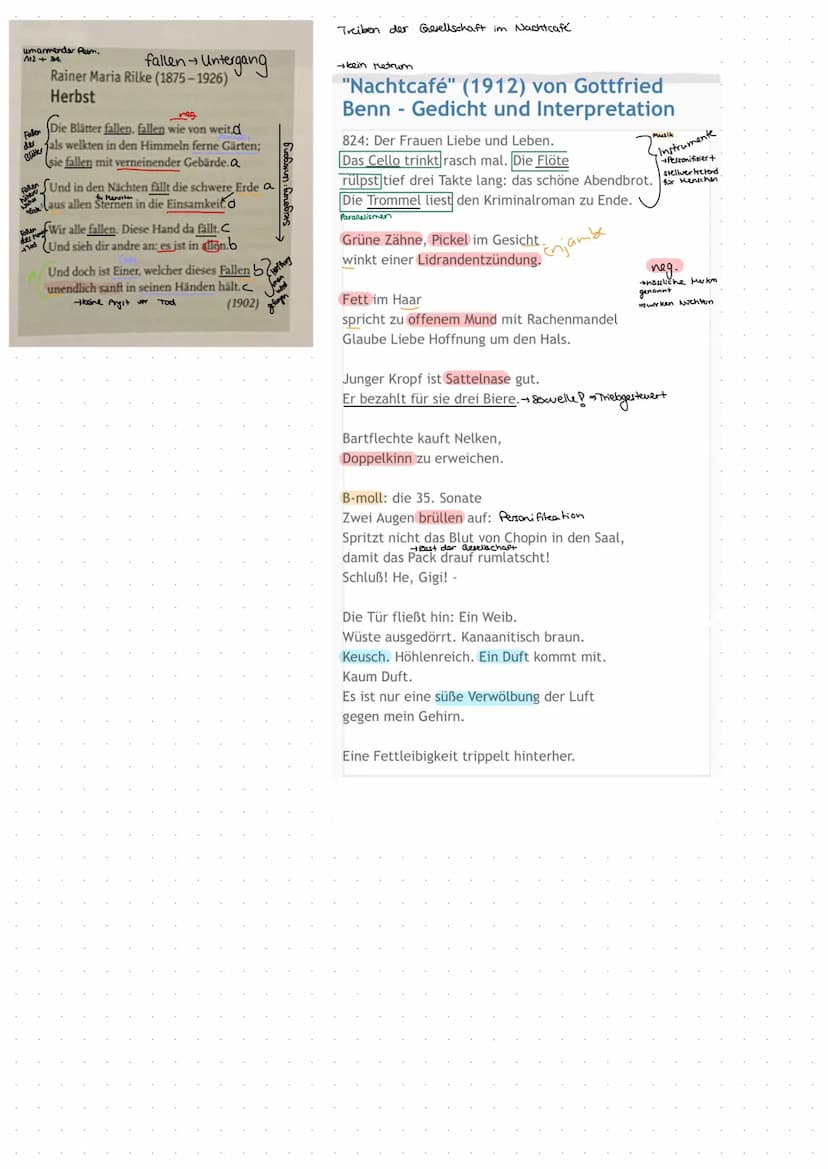 umarmender Reim.
fallen → Untergang
Rainer Maria Rilke (1875 – 1926)
Herbst
neg
Die Blätter fallen, fallen wie von weit, d
als welkten in den Himmeln ferne Gärten;
sie fallen mit verneinender Gebärde. a
Fallen der Blätter
Und in den Nächten fällt die schwere Erde a
aus allen Sternen in die Einsamkeit. d
Wir alle fallen. Diese Hand da fällt. c
Und sieh dir andre an: es ist in allen. b
Und doch ist Einer, welcher dieses Fallen b
unendlich sanft in seinen Händen hält. c
→ keine Angst vor Tod
(1902)
Steigerung
Treiben der Gesellschaft im Nachtcafé
→ kein Metrum
"Nachtcafé" (1912) von Gottfried
Benn - Gedicht und Interpretation
824: Der Frauen Liebe und Leben.
Das Cello trinkt rasch mal. Die Flöte
rülpst tief drei Takte lang: das schöne Abendbrot.
Die Trommel liest den Kriminalroman zu Ende.
Musik
Instrumente
→ Personifiziert
stellvertretend
für Menschen
Parallelismen
Grüne Zähne, Pickel im Gesicht
winkt einer Lidrandentzündung.
Enjambe
neg.
→ hässliche Merkm
genannt
Fett im Haar
spricht zu offenem Mund mit Rachenmandel
Glaube Liebe Hoffnung um den Hals.
Junger Kropf ist Sattelnase gut.
Er bezahlt für sie drei Biere. → Sexuelle! → Triebgesteuert
Bartflechte kauft Nelken,
Doppelkinn zu erweichen.
B-moll: die 35. Sonate
Zwei Augen brüllen auf: Personifikation
Spritzt nicht das Blut von Chopin in den Saal,
der Gesellschaft
damit das Pack drauf rumlatscht!
Schluß! He, Gigi! -
Die Tür fließt hin: Ein Weib.
Wüste ausgedörrt. Kanaanitisch braun.
Keusch. Höhlenreich. Ein Duft kommt mit.
Kaum Duft.
Es ist nur eine süße Verwölbung der Luft
gegen mein Gehirn.
Eine Fettleibigkeit trippelt hinterher.